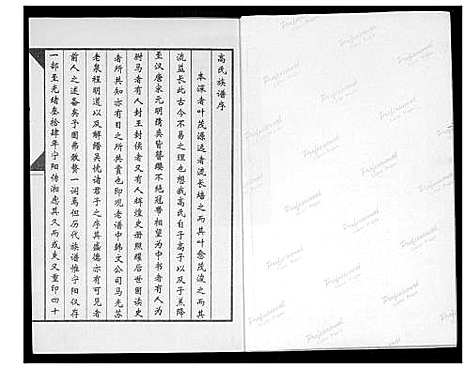 高氏族谱序
本深者叶茂源远者流长培之而其叶愈茂浚之而其
流益长此古今不易之理也想我高氏自子高子以及于羔降
至汉唐宋元明携英皆簪缨不绝冠带相望为中书者有人为
驸马者有人封王封侯者又有人辉煌史册照耀后世图读史
者所共知亦有目之所共赏也即现老谱中韩文公司马光苏
老泉程明道以及解缙吴忱诸君子之序其盛德亦有可见者
前人之述备矣予固弗敢赘一词焉但历代族谱惟宁阳仪存
一部至光绪叁拾肆年宁阳传湘虑其久而或失又重印四十
Professional